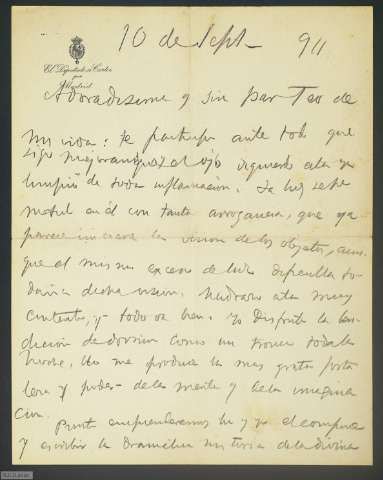 10 de Sept - 911
El Diputado a Cortes
por
Madrid
Adoradisima y sin par Teo de
mi vida: te participo ante todo que
sigo mejorando, el ojo izquierdo esta ya
limpio de toda inflamacion. La luz se ha
metido en él con tanta arrogancia, que ya
parece la vision de los objetos, aun
que el mismo exceso de luz dificulta to
davia dicha vision. esta muy
contento, y todo va bien. Yo disfruto la ben
dicion de dormir como un tronco toda la
noche. Uno me produce la mas grata forta
leza y poder de la mente y de la imagina
cion.
Pronto emprenderemos tu y yo el componer
y escribir la dramatica historia de la divina